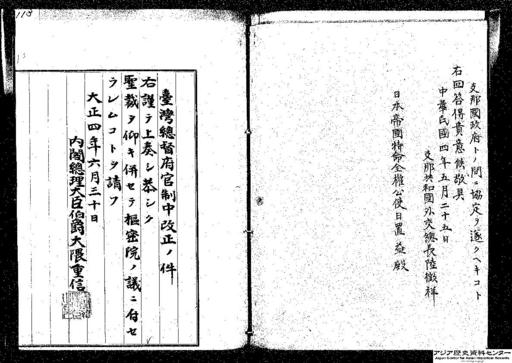 支那國政府トノ間ニ協定ヲ遂クヘキコト
右回答得貴意候敬具
中華民國四年五月二十五日
支那共和國外交總長陸徴祥
日本帝國特命全權公使日置益殿
臺灣總督府官制中改正ノ件
右謹テ上奏シ恭シク
聖裁ヲ仰キ併セテ樞密院ノ議ニ付セ
ラレムコトヲ請フ
大正四年六月三十日
内閣總理大臣伯爵大隈重信
アジア歴史資料センター
Japan Center for Asian Historical Records